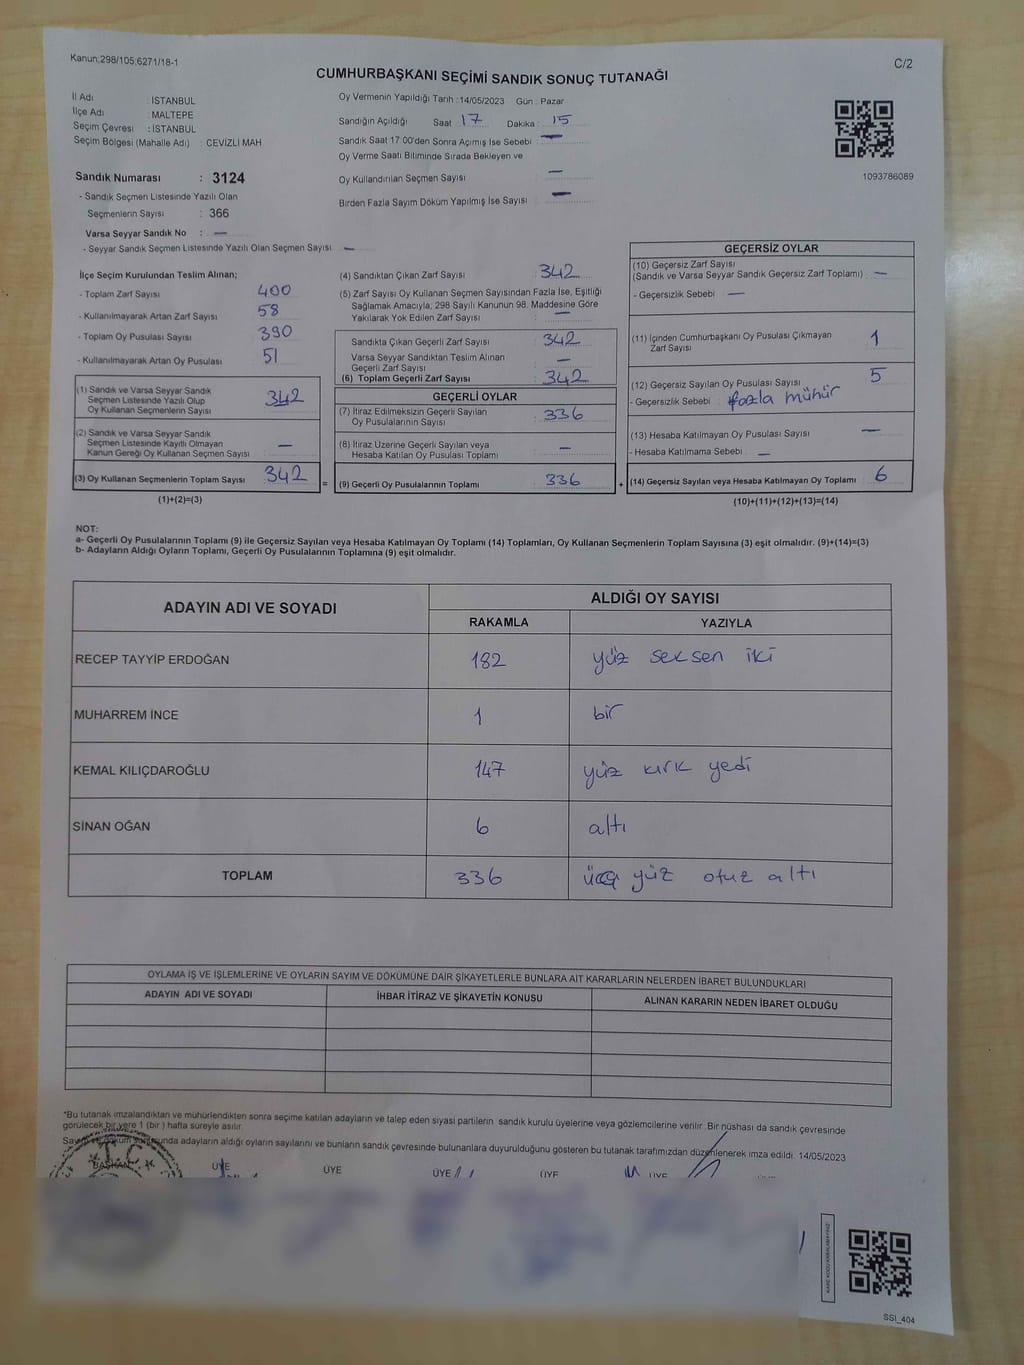 Kanun:298/105,6271/18-1
C/2
CUMHURBAŞKANI SEÇİMİ SANDIK SONUÇ TUTANAĞI
İl Adı : İSTANBUL
İlçe Adı : MALTEPE
Seçim Çevresi : İSTANBUL
Seçim Bölgesi (Mahalle Adı) : CEVİZLİ MAH
Sandık Numarası : 3124
- Sandık Seçmen Listesinde Yazılı Olan
Seçmenlerin Sayısı : 366
Varsa Seyyar Sandık No : —
- Seyyar Sandık Seçmen Listesinde Yazılı Olan Seçmen Sayısı —
Oy Vermenin Yapıldığı Tarih : 14/05/2023 Gün : Pazar
Sandığın Açıldığı Saat 17 Dakika : 15
Sandık Saat 17:00'den Sonra Açılmış İse Sebebi : —
Oy Verme Saati Bitiminde Sırada Bekleyen ve
Oy Kullandırılan Seçmen Sayısı —
Birden Fazla Sayım Döküm Yapılmış İse Sayısı —
1093786089
İlçe Seçim Kurulundan Teslim Alınan;
- Toplam Zarf Sayısı 400
- Kullanılmayarak Artan Zarf Sayısı 58
- Toplam Oy Pusulası Sayısı 390
- Kullanılmayarak Artan Oy Pusulası 51
(1) Sandık ve Varsa Seyyar Sandık
Seçmen Listesinde Yazılı Olup
Oy Kullanan Seçmenlerin Sayısı 342
(2) Sandık ve Varsa Seyyar Sandık
Seçmen Listesinde Kayıtlı Olmayan
Kanun Gereği Oy Kullanan Seçmen Sayısı —
(3) Oy Kullanan Seçmenlerin Toplam Sayısı 342
(1)+(2)=(3)
(4) Sandıktan Çıkan Zarf Sayısı 342
(5) Zarf Sayısı Oy Kullanan Seçmen Sayısından Fazla İse, Eşitliği
Sağlamak Amacıyla, 298 Sayılı Kanunun 98. Maddesine Göre
Yakılarak Yok Edilen Zarf Sayısı —
Sandıkta Çıkan Geçerli Zarf Sayısı 342
Varsa Seyyar Sandıktan Teslim Alınan
Geçerli Zarf Sayısı —
(6) Toplam Geçerli Zarf Sayısı 342
GEÇERLİ OYLAR
(7) İtiraz Edilmeksizin Geçerli Sayılan
Oy Pusulalarının Sayısı 336
(8) İtiraz Üzerine Geçerli Sayılan veya
Hesaba Katılan Oy Pusulası Toplamı —
= (9) Geçerli Oy Pusulalarının Toplamı 336
GEÇERSİZ OYLAR
(10) Geçersiz Zarf Sayısı
(Sandık ve Varsa Seyyar Sandık Geçersiz Zarf Toplamı) —
- Geçersizlik Sebebi —
(11) İçinden Cumhurbaşkanı Oy Pusulası Çıkmayan
Zarf Sayısı 1
(12) Geçersiz Sayılan Oy Pusulası Sayısı 5
- Geçersizlik Sebebi fazla mühür
(13) Hesaba Katılmayan Oy Pusulası Sayısı —
- Hesaba Katılmama Sebebi —
+ (14) Geçersiz Sayılan veya Hesaba Katılmayan Oy Toplamı 6
(10)+(11)+(12)+(13)=(14)
NOT:
a- Geçerli Oy Pusulalarının Toplamı (9) ile Geçersiz Sayılan veya Hesaba Katılmayan Oy Toplamı (14) Toplamları, Oy Kullanan Seçmenlerin Toplam Sayısına (3) eşit olmalıdır. (9)+(14)=(3)
b- Adayların Aldığı Oyların Toplamı, Geçerli Oy Pusulalarının Toplamına (9) eşit olmalıdır.
ADAYIN ADI VE SOYADI
ALDIĞI OY SAYISI
RAKAMLA YAZIYLA
RECEP TAYYİP ERDOĞAN 182 yüz seksen iki
MUHARREM İNCE 1 bir
KEMAL KILIÇDAROĞLU 147 yüz kırk yedi
SİNAN OĞAN 6 altı
TOPLAM 336 üç yüz otuz altı
OYLAMA İŞ VE İŞLEMLERİNE VE OYLARIN SAYIM VE DÖKÜMÜNE DAİR ŞİKAYETLERLE BUNLARA AİT KARARLARIN NELERDEN İBARET BULUNDUKLARI
ADAYIN ADI VE SOYADI İHBAR İTİRAZ VE ŞİKAYETİN KONUSU ALINAN KARARIN NEDEN İBARET OLDUĞU
*Bu tutanak imzalandıktan ve mühürlendikten sonra seçime katılan adayların ve talep eden siyasi partilerin sandık kurulu üyelerine veya gözlemcilerine verilir. Bir nüshası da sandık çevresinde
görülecek bir yere 1 (bir ) hafta süreyle asılır.
adayların aldığı oyların sayılarını ve bunların sandık çevresinde bulunanlara duyurulduğunu gösteren bu tutanak tarafımızdan düzenlenerek imza edildi. 14/05/2023
T.C.
BAŞKAN ÜYE ÜYE ÜYE ÜYE ÜYE
SSI_404